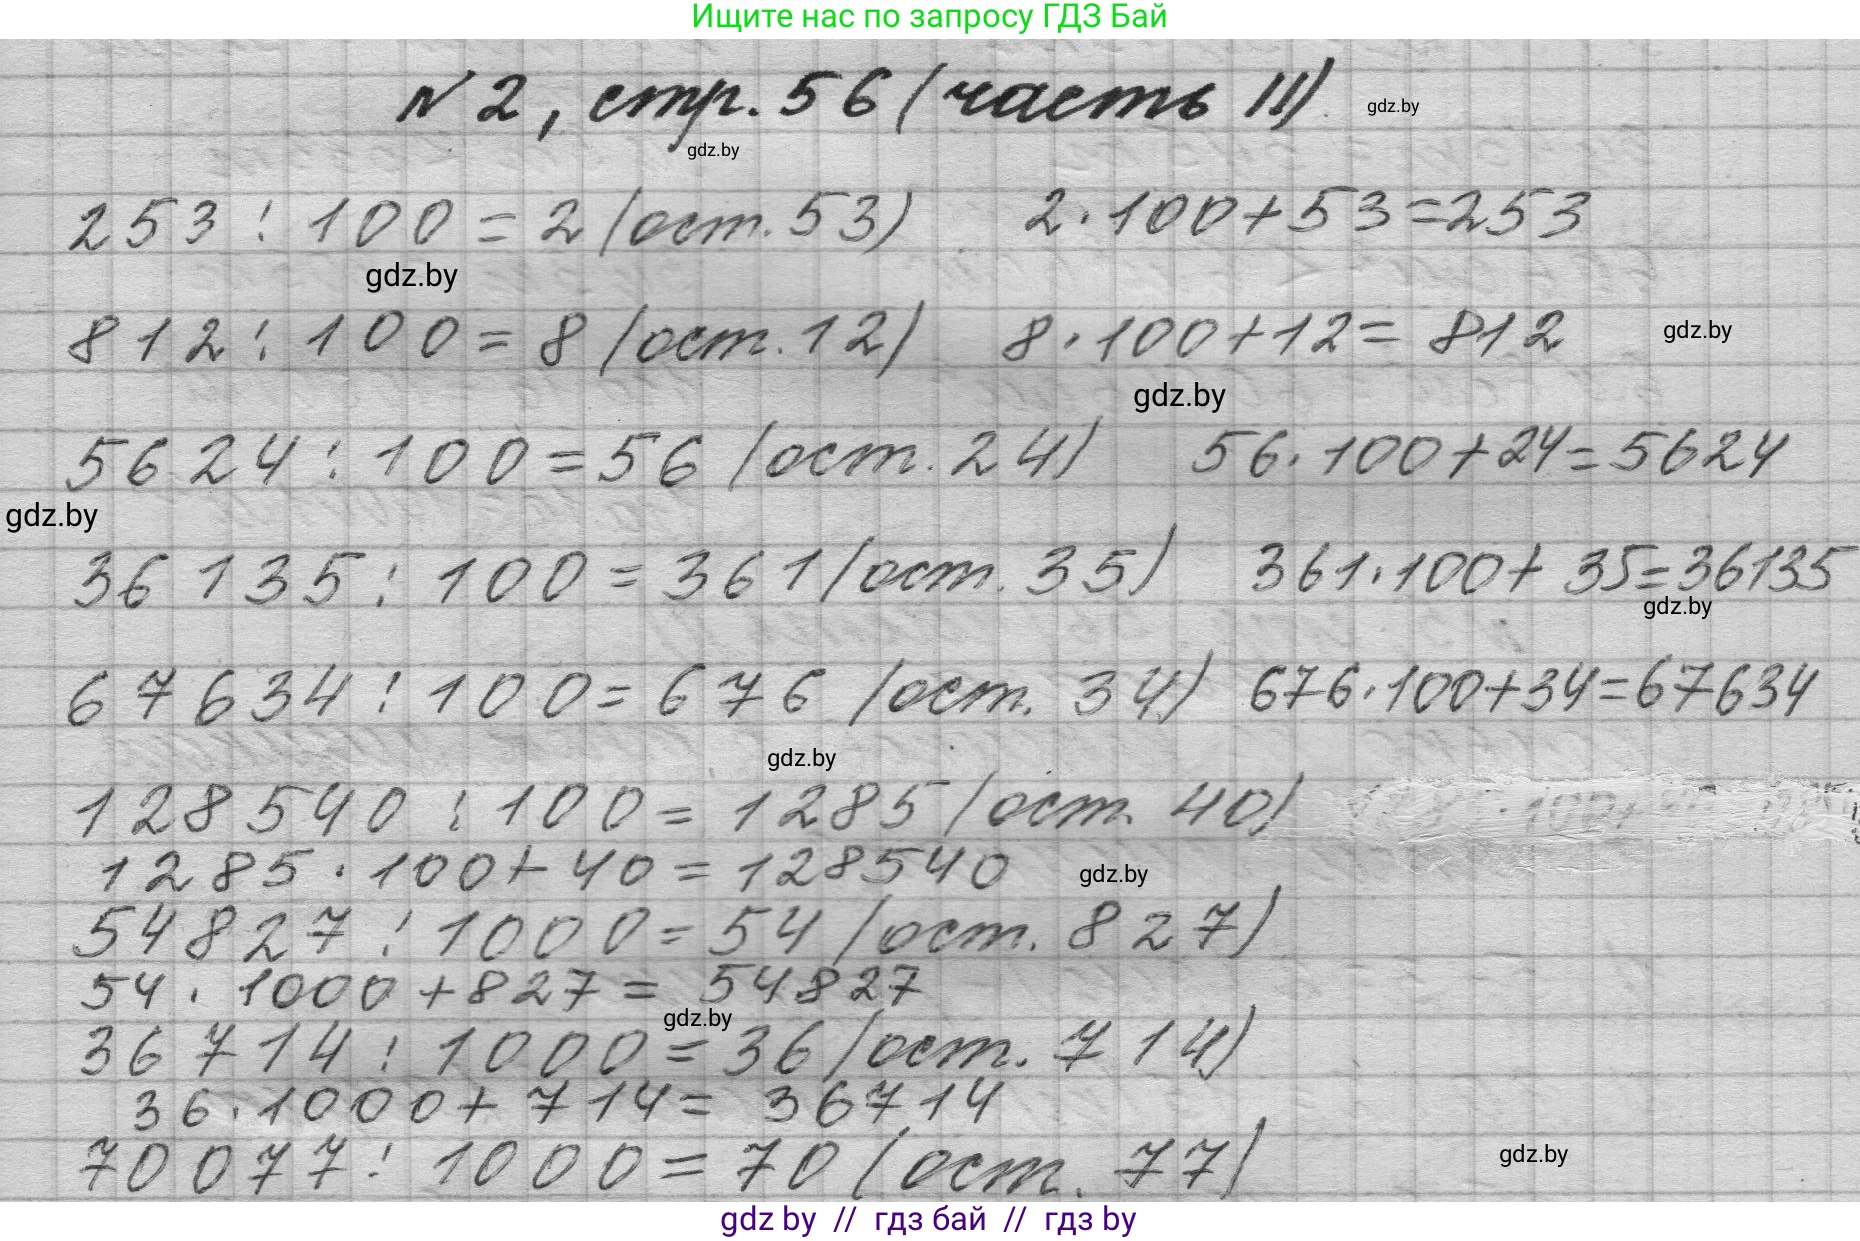 Ищите нас по запросу ГДЗ Бай
№2, стр. 56 (часть II)
gdz.by
gdz.by
253 : 100 = 2 (ост. 53) 2 · 100 + 53 = 253
gdz.by
812 : 100 = 8 (ост. 12) 8 · 100 + 12 = 812
gdz.by
gdz.by
5624 : 100 = 56 (ост. 24) 56 · 100 + 24 = 5624
gdz.by
36135 : 100 = 361 (ост. 35) 361 · 100 + 35 = 36135
gdz.by
67634 : 100 = 676 (ост. 34) 676 · 100 + 34 = 67634
gdz.by
128540 : 100 = 1285 (ост. 40)
1285 · 100 + 40 = 128540
gdz.by
54827 : 1000 = 54 (ост. 827)
54 · 1000 + 827 = 54827
gdz.by
36714 : 1000 = 36 (ост. 714)
36 · 1000 + 714 = 36714
70077 : 1000 = 70 (ост. 77)
gdz.by
gdz by // гдз бай // гдз by